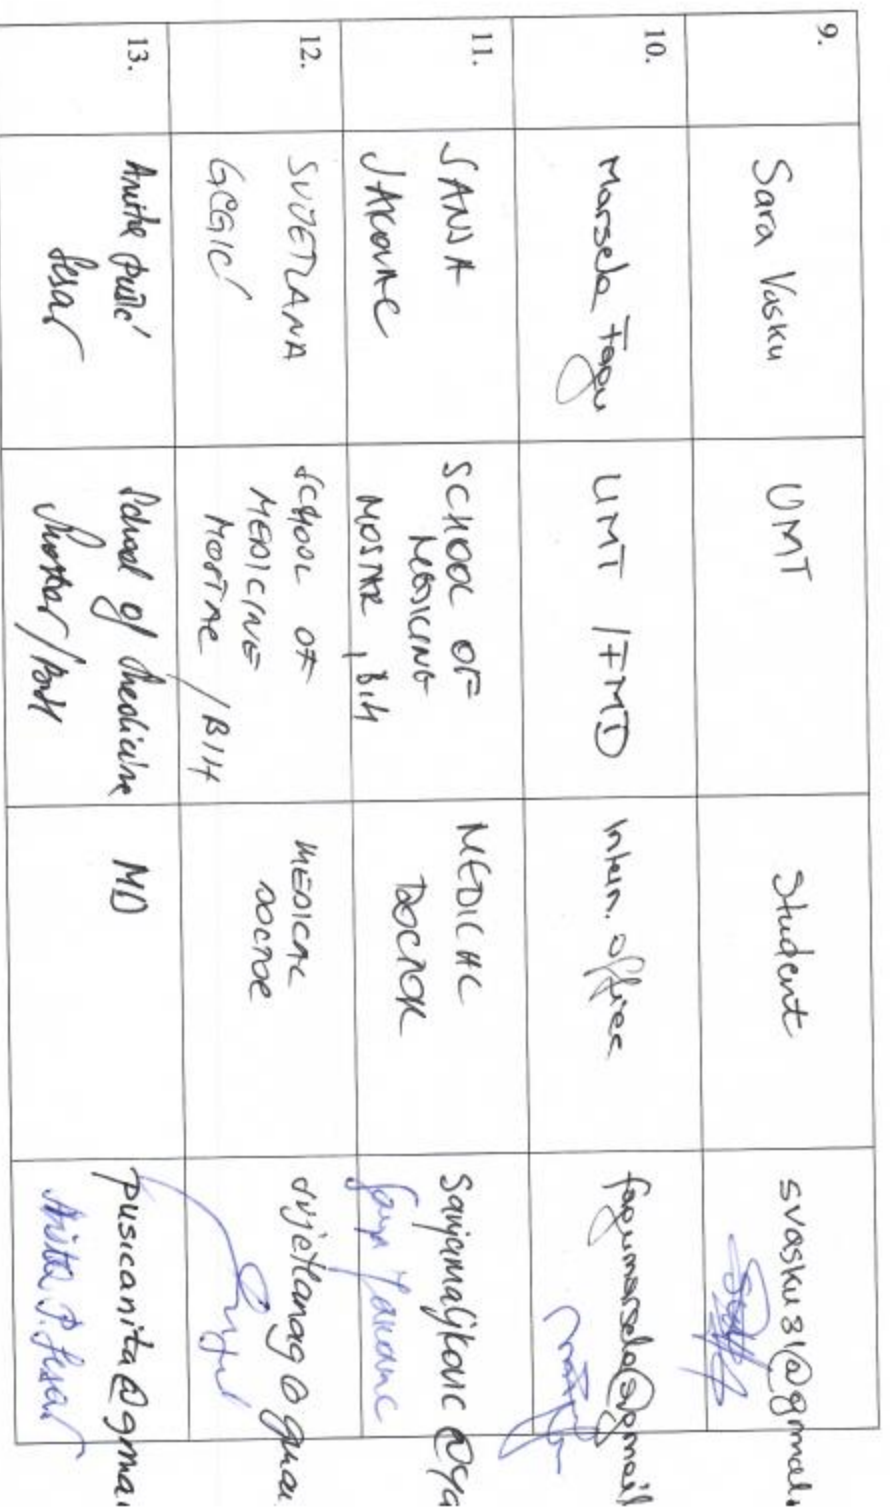 9.
Sara Vasku
UMT
Student
svasku31@gmail.
10.
Marsela Fagu
UMT / FMD
Intern. office
fagumarsela@gmail
11.
SANJA
JAKOVAC
SCHOOL OF
MEDICINE
MOSTAR, BIH
MEDICAL
DOCTOR
Sanjamaljkovic@ya
12.
SVJETLANA
GRGIĆ
SCHOOL OF
MEDICINE
MOSTAR / BIH
MEDICAL
DOCTOR
svjetlanag@gmai
13.
Anita Pušić
Sesar
School of Medicine
Mostar / BiH
MD
pusicanita@gmai
Anita P. Sesar